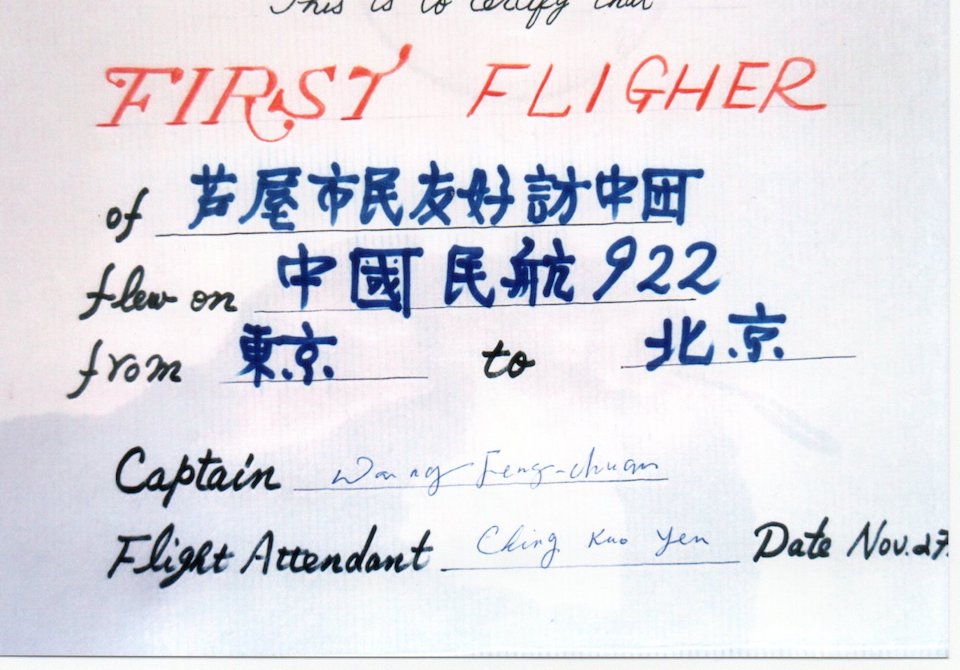 This is to certify that
FIRST FLIGHER
of 芦屋市民友好訪中団
flew on 中國民航922
from 東京 to 北京
Captain Wang Feng-chuan
Flight Attendant Ching Kuo Yen Date Nov.27